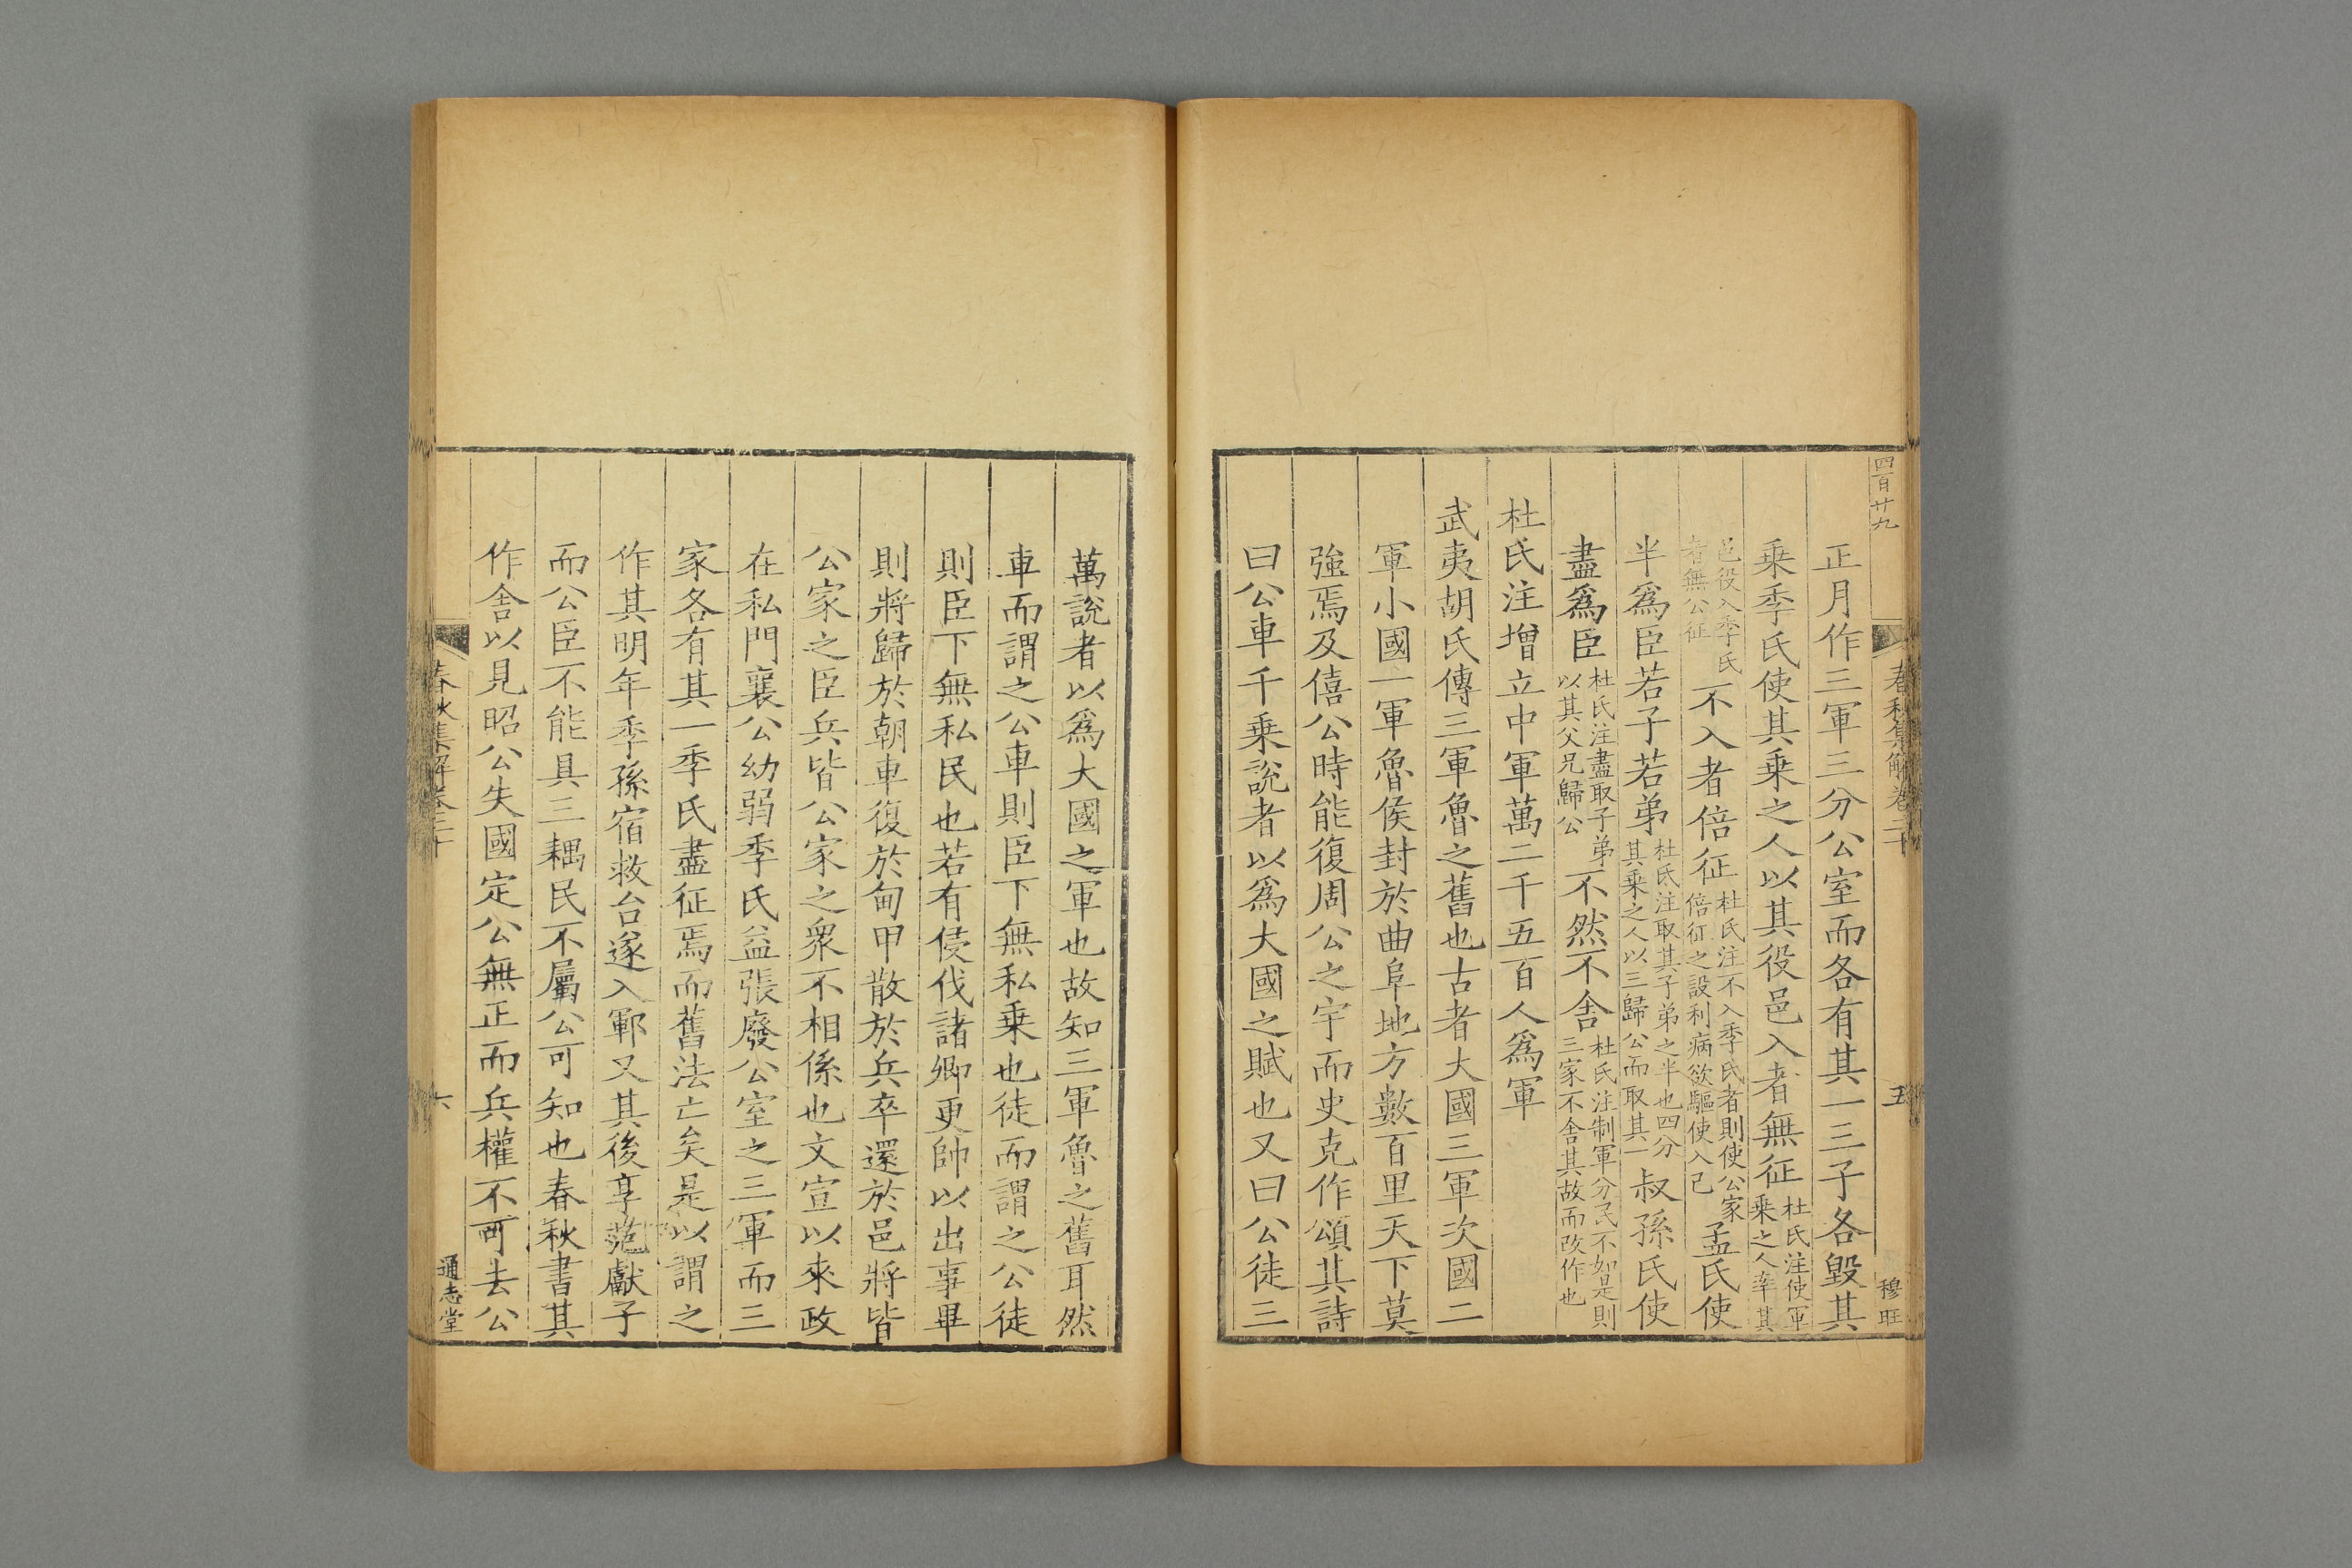 四百廿九
春秋集解卷二十
五
穆旺
正月作三軍三分公室而各有其一三子各毀其
乗季氏使其乗之人以其役邑入者無征杜氏注使軍乗之人率其
邑役入季氏者無公征不入者倍征杜氏注不入季氏者則使公家倍征之設利病欲驅使入己孟氏使
半爲臣若子若弟杜氏注取其子弟之半也四分其乗之人以三歸公而取其一叔孫氏使
盡爲臣杜氏注盡取子弟以其父兄歸公不然不舍杜氏注制軍分民不如是則三家不舍其故而改作也
杜氏注增立中軍萬二千五百人爲軍
武夷胡氏傳三軍魯之舊也古者大國三軍次國二
軍小國一軍魯侯封於曲阜地方數百里天下莫
強焉及僖公時能復周公之宇而史克作頌其詩
曰公車千乗說者以爲大國之賦也又曰公徒三
萬說者以爲大國之軍也故知三軍魯之舊耳然
車而謂之公車則臣下無私乗也徒而謂之公徒
則臣下無私民也若有侵伐諸卿更帥以出事畢
則將歸於朝車復於甸甲散於兵卒還於邑將皆
公家之臣兵皆公家之衆不相係也文宣以來政
在私門襄公幼弱季氏益張廢公室之三軍而三
家各有其一季氏盡征焉而舊法亡矣是以謂之
作其明年季孫宿救台遂入鄆又其後享范獻子
而公臣不能具三耦民不屬公可知也春秋書其
作舍以見昭公失國定公無正而兵權不可去公
春秋集解卷二十
六
通志堂